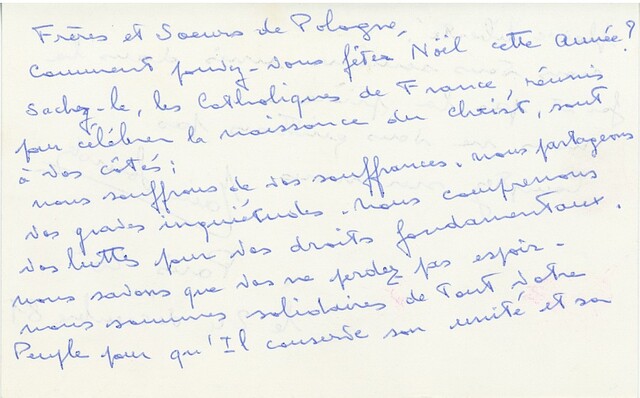 Frères et Soeurs de Pologne,
Comment pouvez-vous fêter Noël cette année?
Sachez-le, les Catholiques de France, réunis
pour célébrer la naissance du Christ, sont
à vos côtés:
nous souffrons de vos souffrances. nous partageons
vos graves inquiétudes. nous comprenons
vos luttes pour vos droits fondamentaux.
nous savons que vos ne perdez pas espoir-
nous sommes solidaires de tout votre
Peuple pour qu'Il conserve son unité et sa